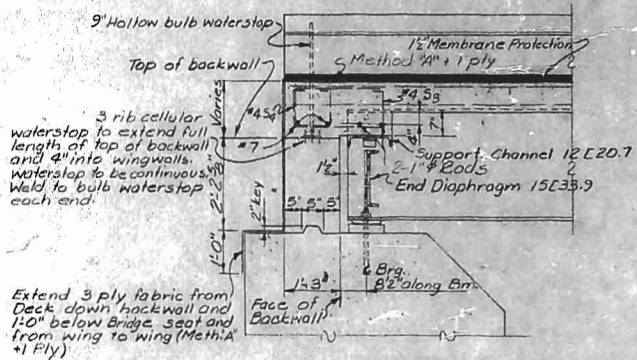 9" Hollow bulb waterstop
1½" Membrane Protection
Method "A" + 1 ply
Top of backwall
Varies
#4 S4
#4 S3
7"
4"
3 rib cellular
waterstop to extend full
length of top of backwall
and 4" into wingwalls.
Waterstop to be continuous.
Weld to bulb waterstop
each end.
#7
1½"
Support Channel 12 [ 20.7
2-1" ϕ Rods
End Diaphragm 15 [ 33.9
2" key
5" 5" 5"
1'-0"
1'-3"
Brg.
8'2" along Bm.
Face of
Backwall
Extend 3 ply fabric from
Deck down backwall and
1'-0" below Bridge seat and
from wing to wing (Meth. "A"
+1 Ply)